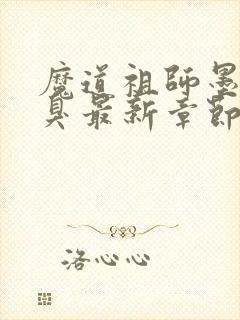 魔道祖师墨
臭最新章節
洛心心